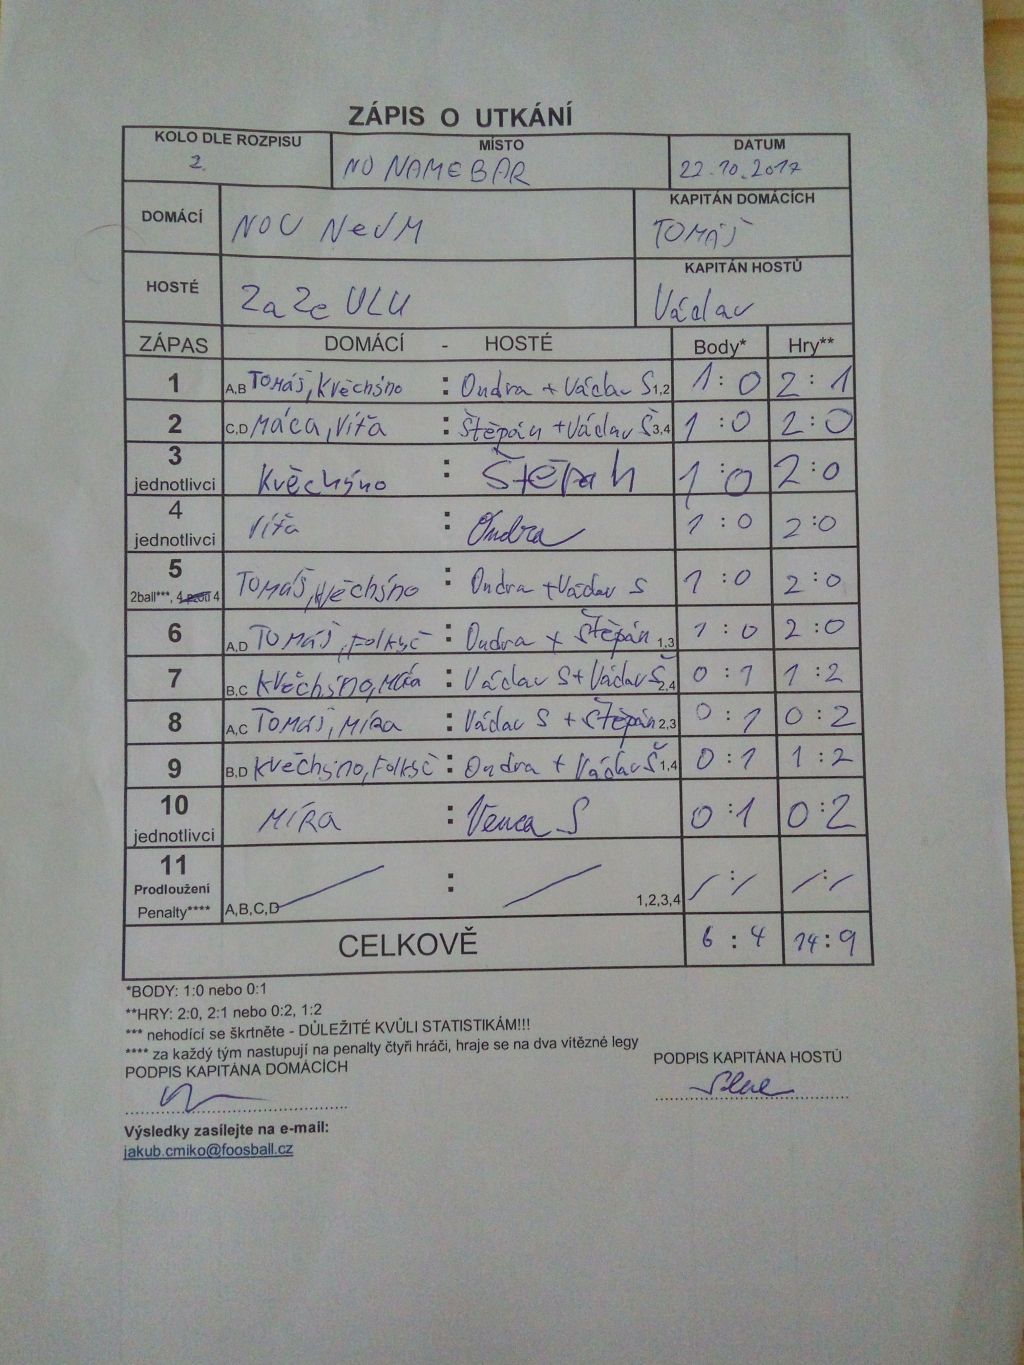 ZÁPIS O UTKÁNÍ
KOLO DLE ROZPISU MÍSTO DATUM
2. NO NAME BAR 22.10.2017
DOMÁCÍ NOU NeVM KAPITÁN DOMÁCÍCH
TOMÁŠ
HOSTÉ Za Ze ULU KAPITÁN HOSTŮ
Václav
ZÁPAS DOMÁCÍ - HOSTÉ Body* Hry**
1 A,B TOMÁŠ, KVĚCHÝNO : Ondra + Václav S 1,2 1:0 2:1
2 C,D MÁCA, VÍŤA : Štěpán + Václav Š 3,4 1:0 2:0
3 jednotlivci KVĚCHÝNO : Štěpán 1:0 2:0
4 jednotlivci VÍŤA : Ondra 1:0 2:0
5 2ball***, 4 proti 4 TOMÁŠ, KVĚCHÝNO : Ondra + Václav S 1:0 2:0
6 A,D TOMÁŠ, FOLKYČ : Ondra + Štěpán 1,3 1:0 2:0
7 B,C KVĚCHÝNO, MÍRA : Václav S + Václav Š 2,4 0:1 1:2
8 A,C TOMÁŠ, MÍRA : Václav S + Štěpán 2,3 0:1 0:2
9 B,D KVĚCHÝNO, FOLKYČ : Ondra + Václav Š 1,4 0:1 1:2
10 jednotlivci MÍRA : Venca S 0:1 0:2
11 Prodloužení Penalty**** A,B,C,D : 1,2,3,4 : :
CELKOVĚ 6:4 14:9
*BODY: 1:0 nebo 0:1
**HRY: 2:0, 2:1 nebo 0:2, 1:2
*** nehodící se škrtněte - DŮLEŽITÉ KVŮLI STATISTIKÁM!!!
**** za každý tým nastupují na penalty čtyři hráči, hraje se na dva vítězné legy
PODPIS KAPITÁNA DOMÁCÍCH PODPIS KAPITÁNA HOSTŮ
Výsledky zasílejte na e-mail:
jakub.cmiko@foosball.cz